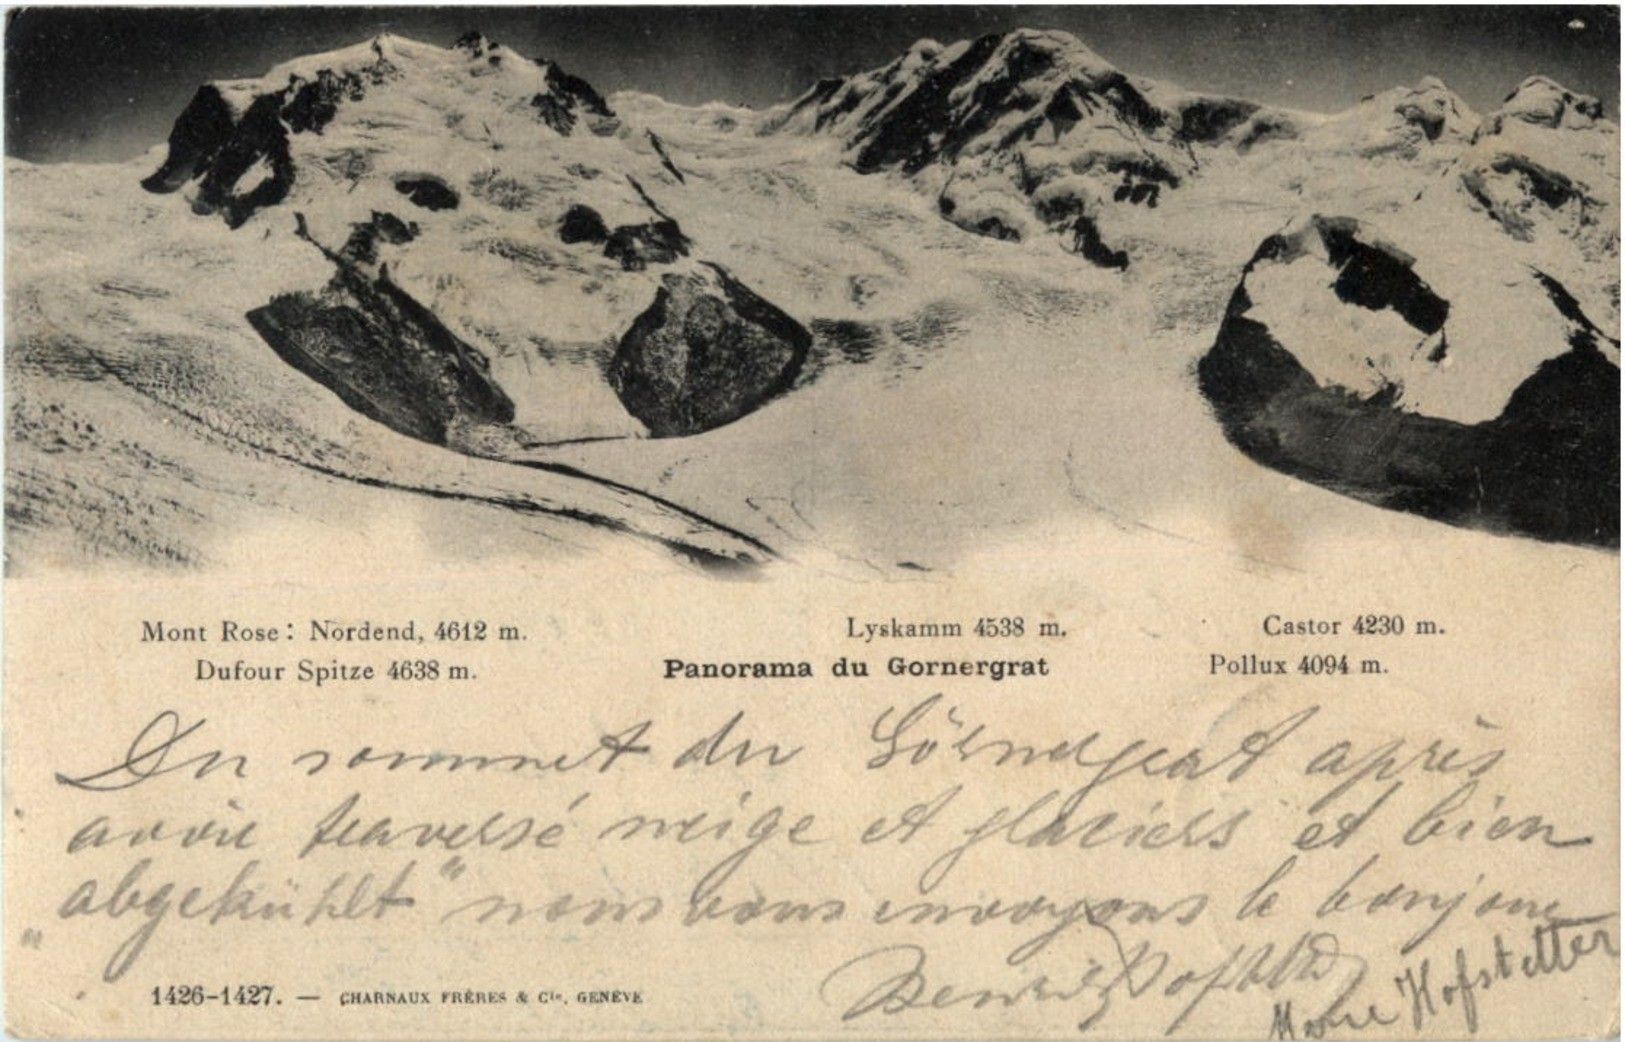 Mont Rose: Nordend, 4612 m. Lyskamm 4538 m. Castor 4230 m.
Dufour Spitze 4638 m. Panorama du Gornergrat Pollux 4094 m.
Du sommet du Görnergrat après
avoir traversé neige et glaciers et bien
„abgekühlt“ nous vous envoyons le bonjour
Hofstetter
1426-1427. — CHARNAUX FRÈRES & Cie, GENÈVE